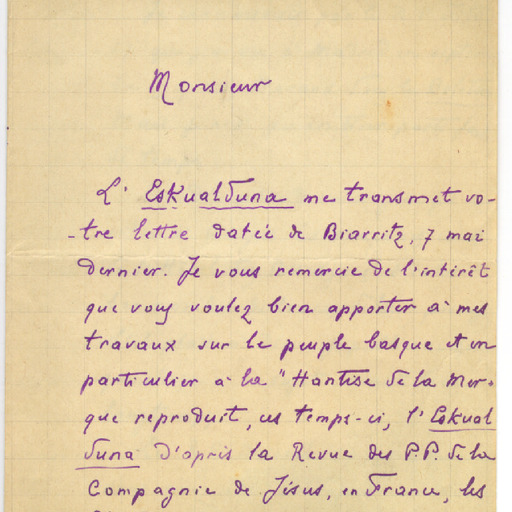 Monsieur
L' Eskualduna me transmet vo-
-tre lettre datée de Biarritz, 7 mai
dernier. Je vous remercie de l'intérêt
que vous voulez bien apporter à mes
travaux sur le peuple basque et en
particulier à la "Hantise de la Mer"
que reproduit, ces temps-ci, l'Eskual
duna d'après la Revue des P.P. de la
Compagnie de Jésus, en France, les